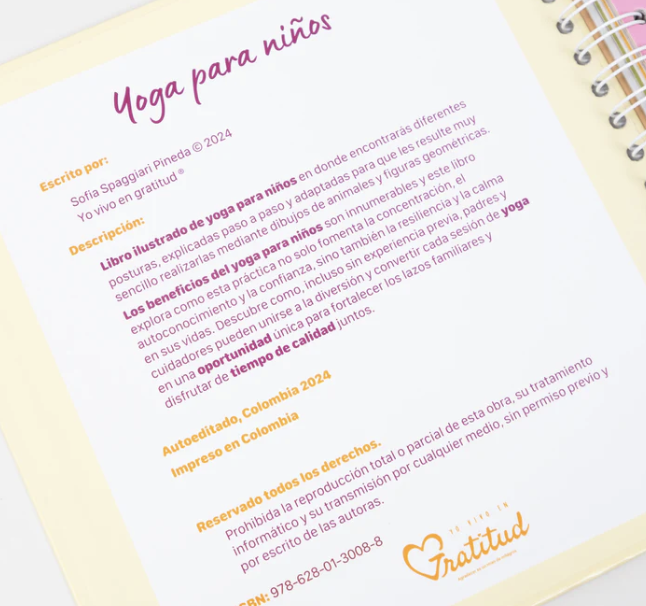 Yoga para niños
Escrito por:
Sofía Spaggiari Pineda © 2024
Yo vivo en gratitud ®
Descripción:
Libro ilustrado de yoga para niños en donde encontrarás diferentes
posturas, explicadas paso a paso y adaptadas para que les resulte muy
sencillo realizarlas mediante dibujos de animales y figuras geométricas.
Los beneficios del yoga para niños son innumerables y este libro
explora como esta práctica no solo fomenta la concentración, el
autoconocimiento y la confianza, sino también la resiliencia y la calma
en sus vidas. Descubre como, incluso sin experiencia previa, padres y
cuidadores pueden unirse a la diversión y convertir cada sesión de yoga
en una oportunidad única para fortalecer los lazos familiares y
disfrutar de tiempo de calidad juntos.
Autoeditado, Colombia 2024
Impreso en Colombia
Reservado todos los derechos.
Prohibida la reproducción total o parcial de esta obra, su tratamiento
informático y su transmisión por cualquier medio, sin permiso previo y
por escrito de las autoras.
SBN: 978-628-01-3008-8
YO VIVO EN
Gratitud